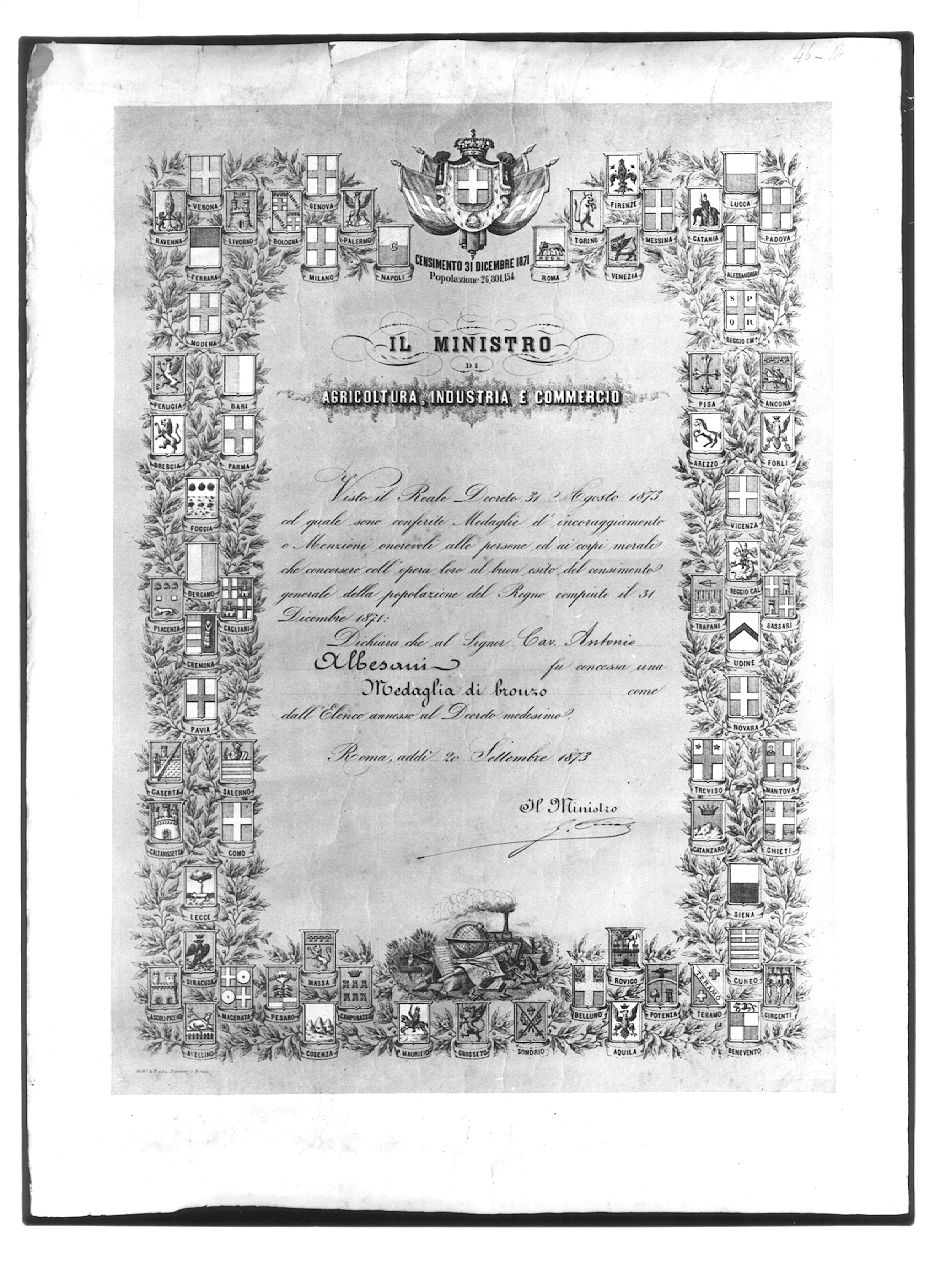 46-B
VERONA
GENOVA
FIRENZE
LUCCA
RAVENNA
LIVORNO
BOLOGNA
PALERMO
TORINO
MESSINA
CATANIA
PADOVA
FERRARA
MILANO
NAPOLI
ROMA
VENEZIA
ALESSANDRIA
CENSIMENTO 31 DICEMBRE 1871
Popolazione 26,801,154.
MODENA
S P
Q R
REGGIO EM.
IL MINISTRO
DI
AGRICOLTURA, INDUSTRIA E COMMERCIO
PERUGIA
BARI
PISA
ANCONA
BRESCIA
PARMA
AREZZO
FORLI
Visto il Reale Decreto 31 Agosto 1873
col quale sono conferite Medaglie d'incoraggiamento
e Menzioni onorevoli alle persone ed ai corpi morali
che concorsero coll'opera loro al buon esito del censimento
generale della popolazione del Regno compiuto il 31
Dicembre 1871:
Dichiara che al Signor Cav. Antonio
Albesani fu concessa una
Medaglia di bronzo come
dall'Elenco annesso al Decreto medesimo.
Roma, addì 20 Settembre 1873
Il Ministro
FOGGIA
VICENZA
BERGAMO
REGGIO CAL.
PIACENZA
CAGLIARI
TRAPANI
SASSARI
CREMONA
UDINE
PAVIA
NOVARA
CASERTA
SALERNO
TREVISO
MANTOVA
CALTANISSETTA
COMO
CATANZARO
CHIETI
LECCE
SIENA
SIRACUSA
MASSA
ROVIGO
CUNEO
ASCOLI-PICENO
MACERATA
PESARO
CAMPOBASSO
BELLUNO
POTENZA
TERAMO
GIRGENTI
AVELLINO
COSENZA
P. MAURIZIO
GROSSETO
SONDRIO
AQUILA
BENEVENTO